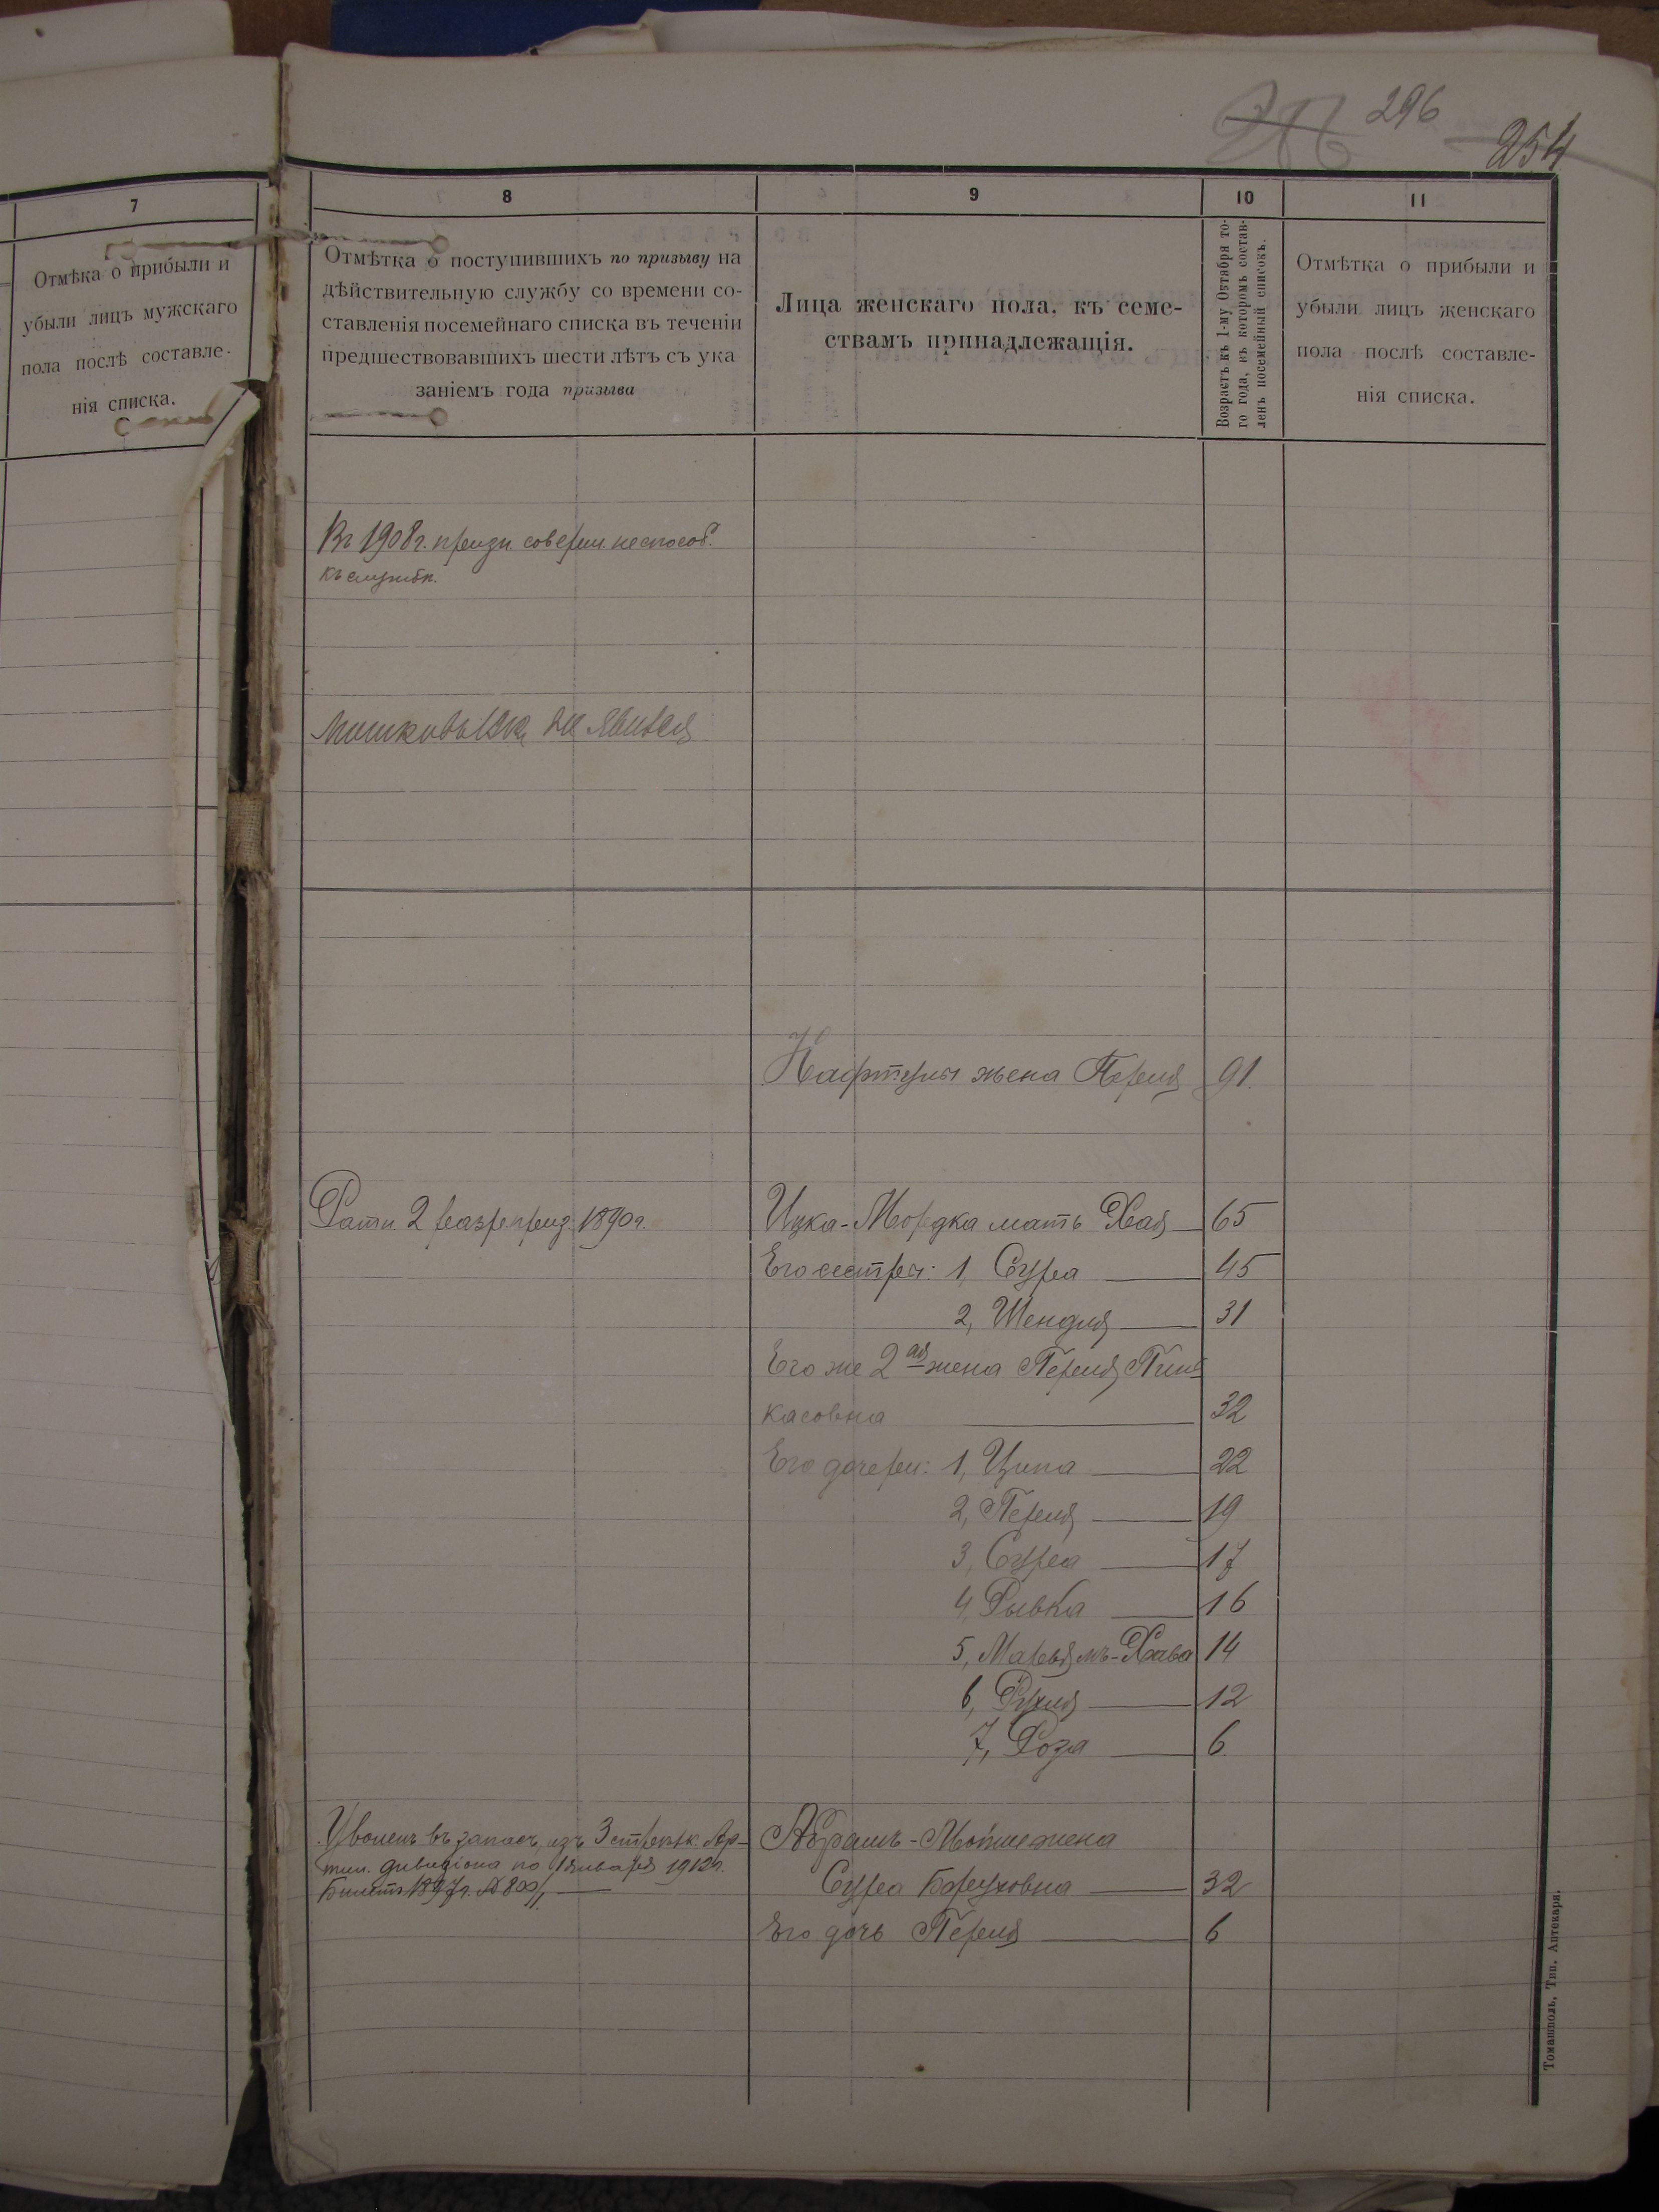 296
254
7
Отмѣка о прибыли и
убыли лицъ мужскаго
пола послѣ составле-
нія списка.
8
Отмѣтка о поступившихъ по призыву на
дѣйствительную службу со времени со-
ставленія посемейнаго списка въ теченіи
предшествовавшихъ шести лѣтъ съ ука
заніемъ года призыва
9
Лица женскаго пола, къ семе-
ствамъ принадлежащія.
10
Возрастъ къ 1-му Октября то-
го года, къ которомъ состав-
ленъ посемейный списокъ.
11
Отмѣтка о прибыли и
убыли лицъ женскаго
пола послѣ составле-
нія списка.
Въ 1908 г. призн. соверш. неспособ.
къ службѣ.
не явился
Нафтулы жена Перля 91.
Ратн. 2 разр. 1890 г.
Ицка-Мордка мать Хая 65
Его сестры: 1, Сура 45
2, Шендля 31
Его же 2 ая жена Перля Пин-
касовна 32
Его дочери: 1, Ципа 22
2, Перля 19
3, Сура 17
4, Рывка 16
5, Марьямъ-Хава 14
6, Рухля 12
7, Роза 6.
Уволенъ въ запасъ изъ 3 стрѣлк. Ар-
тил. дивизіона по 1 января 1912 г.
Билетъ 1897 г. № 800
Абрамъ-Мойше жена
Сура Боруховна 32
Его дочь Перля 6
Томашполь, Тип. Аптекаря.